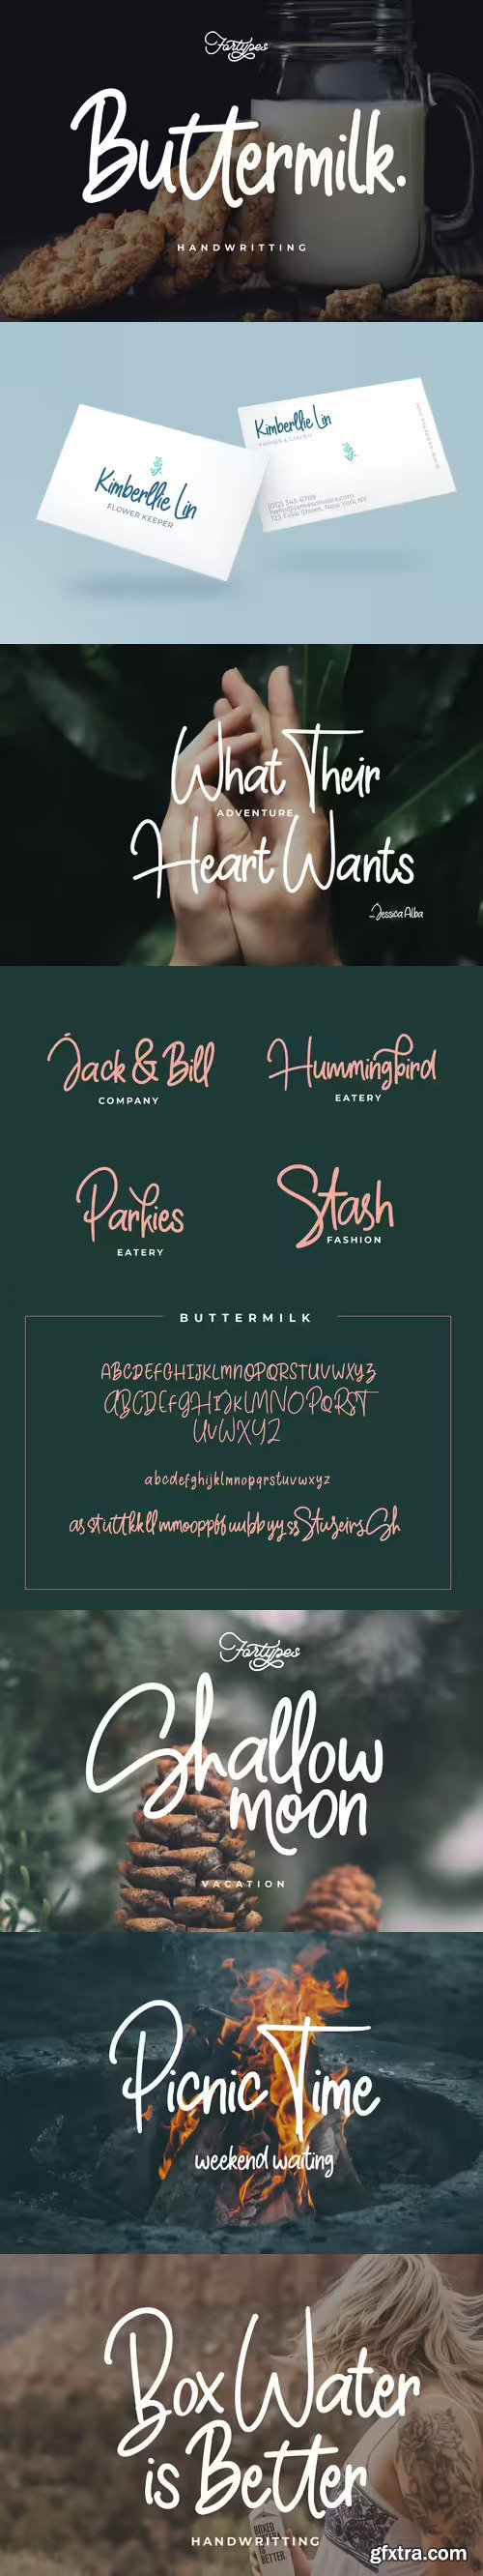 Fortypes
Buttermilk.
HANDWRITTING
Kimberllie Lin
FLOWER KEEPER
Kimberllie Lin
FARMER & GARDEN
(012) 345-6789
123 Fake Street, New York NY
What Their
ADVERTURE
Heart Wants
_Jessica Alba
Jack & Bill
COMPANY
Hummingbird
EATERY
Parkies
EATERY
Stash
FASHION
BUTTERMILK
ABCDEFGHIJKLMNOPQRSTUVWXYZ
ABCDEFGHIJKLMNOPQRST
UVWXYZ
abcdefghijklmnopqrstuvwxyz
Fortypes
Shallow
moon
VACATION
Picnic Time
weekend waiting
Box Water
is Better
BOXED
WATER IS
BETTER
HANDWRITTING
gfxtra.com